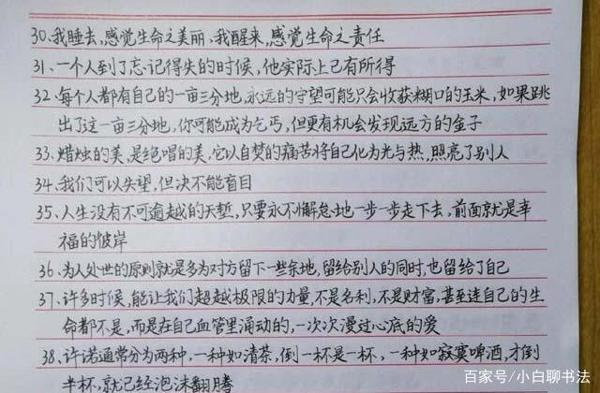 30.我睡去,感觉生命之美丽,我醒来,感觉生命之责任
31、一个人到了忘记得失的时候,他实际上已有所得
32、每个人都有自己的一亩三分地,永远的守望可能只会收获糊口的玉米,如果跳
出了这一亩三分地,你可能成为乞丐,但更有机会发现远方的金子
33、蜡烛的美,是绝唱的美,它以自焚的痛苦将自己化为光与热,照亮了别人
34、我们可以失望,但决不能盲目
35、人生没有不可逾越的天堑,只要永不懈怠地一步一步走下去,前面就是幸
福的彼岸
36、为人处世的原则就是多为对方留下一些余地,留给别人的同时,也留给了自己
37、许多时候,能让我们超越极限的力量,不是名利,不是财富,甚至连自己的生
命都不是,而是在自己血管里涌动的,一次次漫过心底的爱
38、许诺通常分为两种,一种如清茶,倒一杯是一杯,一种如寂寞啤酒,才倒
半杯,就已经泡沫翻腾
百家号/小白聊书法